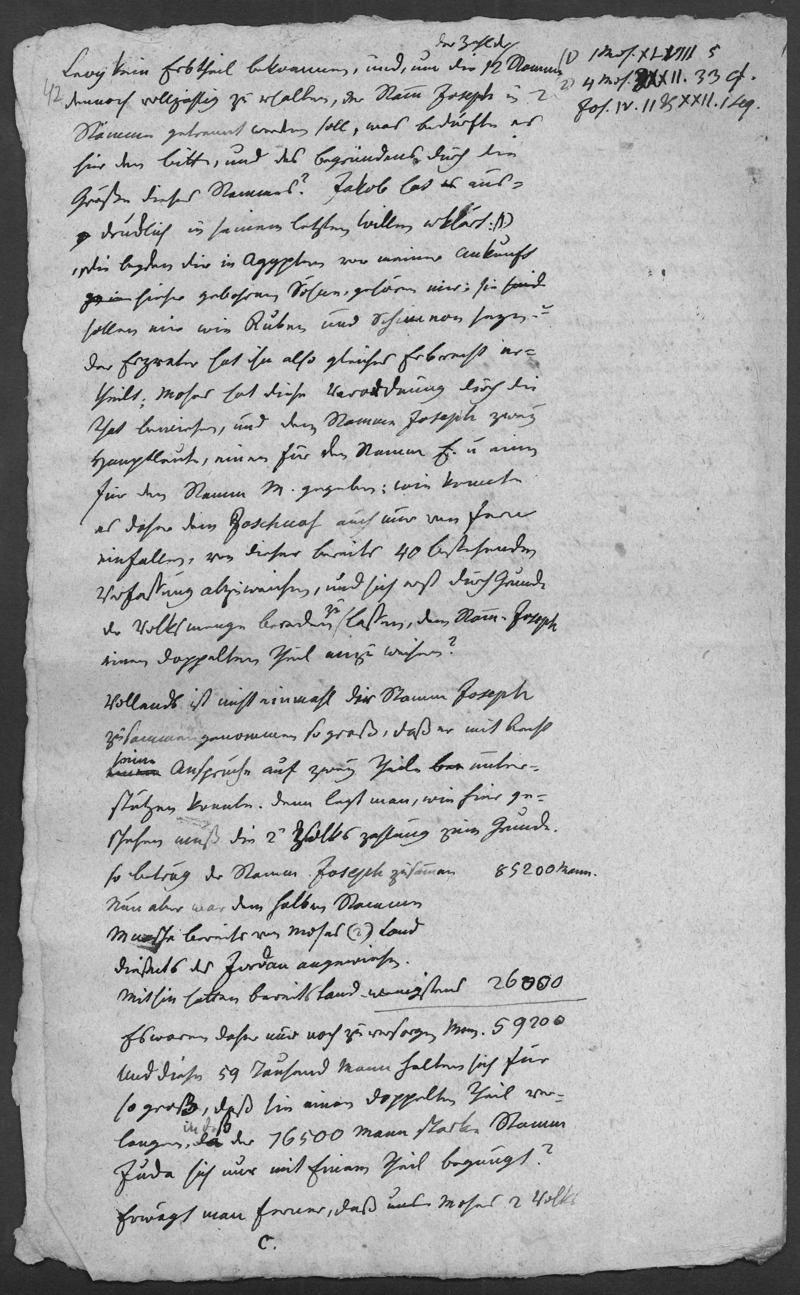 der Zahl der
Levy kein Erbtheil bekommen, und, um die 12 Stämme
dennoch vollzählig zu erhalten, der Stam Joseph in 2
Stämme getrennt werden soll, was bedürfte es
hier der bitte, und des begründens durch die
Größe dieses Stammes? Jakob hat es aus-
drücklich in seinem letzten Willen erklärt: 1)
"die beyden dir in Agypten vor meiner Ankunft
hieher gebohrnen Söhne, gehören mir: sie
sollen mir wie Ruben und Schimeon seyn."
Der Erzvater hat ihn also gleiches Erbrecht er-
theilt; Moses hat diese Verordnung durch die
That bewiesen, und dem Stamme Joseph zwey
Hauptleute, einen für den Stamm E. u einen
für den Stamm M. gegeben: wie konnte
es daher dem Joschuah auch nur von ferne
einfallen, von dieser bereits 40 bestehenden
Verfassung abzuweichen, und sich erst durch Gründe
der Volksmenge bereden zu lassen, dem Stam Joseph
einen doppelten Theil anzuweisen?
Vollends ist nicht einmahl der Stamm Joseph
zusammengenommen so groß, daß er mit Recht
seine Ansprüche auf zwey Theile unter-
stützen konnte. Denn legt man, wie hier ge-
schehen muß die 2te Volkszahlung zum Grunde.
so betrug der Stamm Joseph zusamen 85200 Mann.
Nun aber war dem halben Stamme
Menasche bereits von Moses (2) Land
dießeits des Jordan angewiesen.
Mithin hatten bereits Land wenigstens 26000
Es waren daher nur noch zu versorgen Mann. 59200
Und diese 59 Tausend Mann halten sich für
so groß, daß sie einen doppelten Theil ver-
langen, indeß der 76500 Mann starke Stamm
Juda sich nur mit Einem Theil begnügt?
Erwägt man ferner, daß unter Moses 2 Volks
C.
42
1) 1 Mos. XLVIII 5
2) 4 Mos. XXXII. 33 cf.
Jos. IV. 11 & XXII. 1 seq.